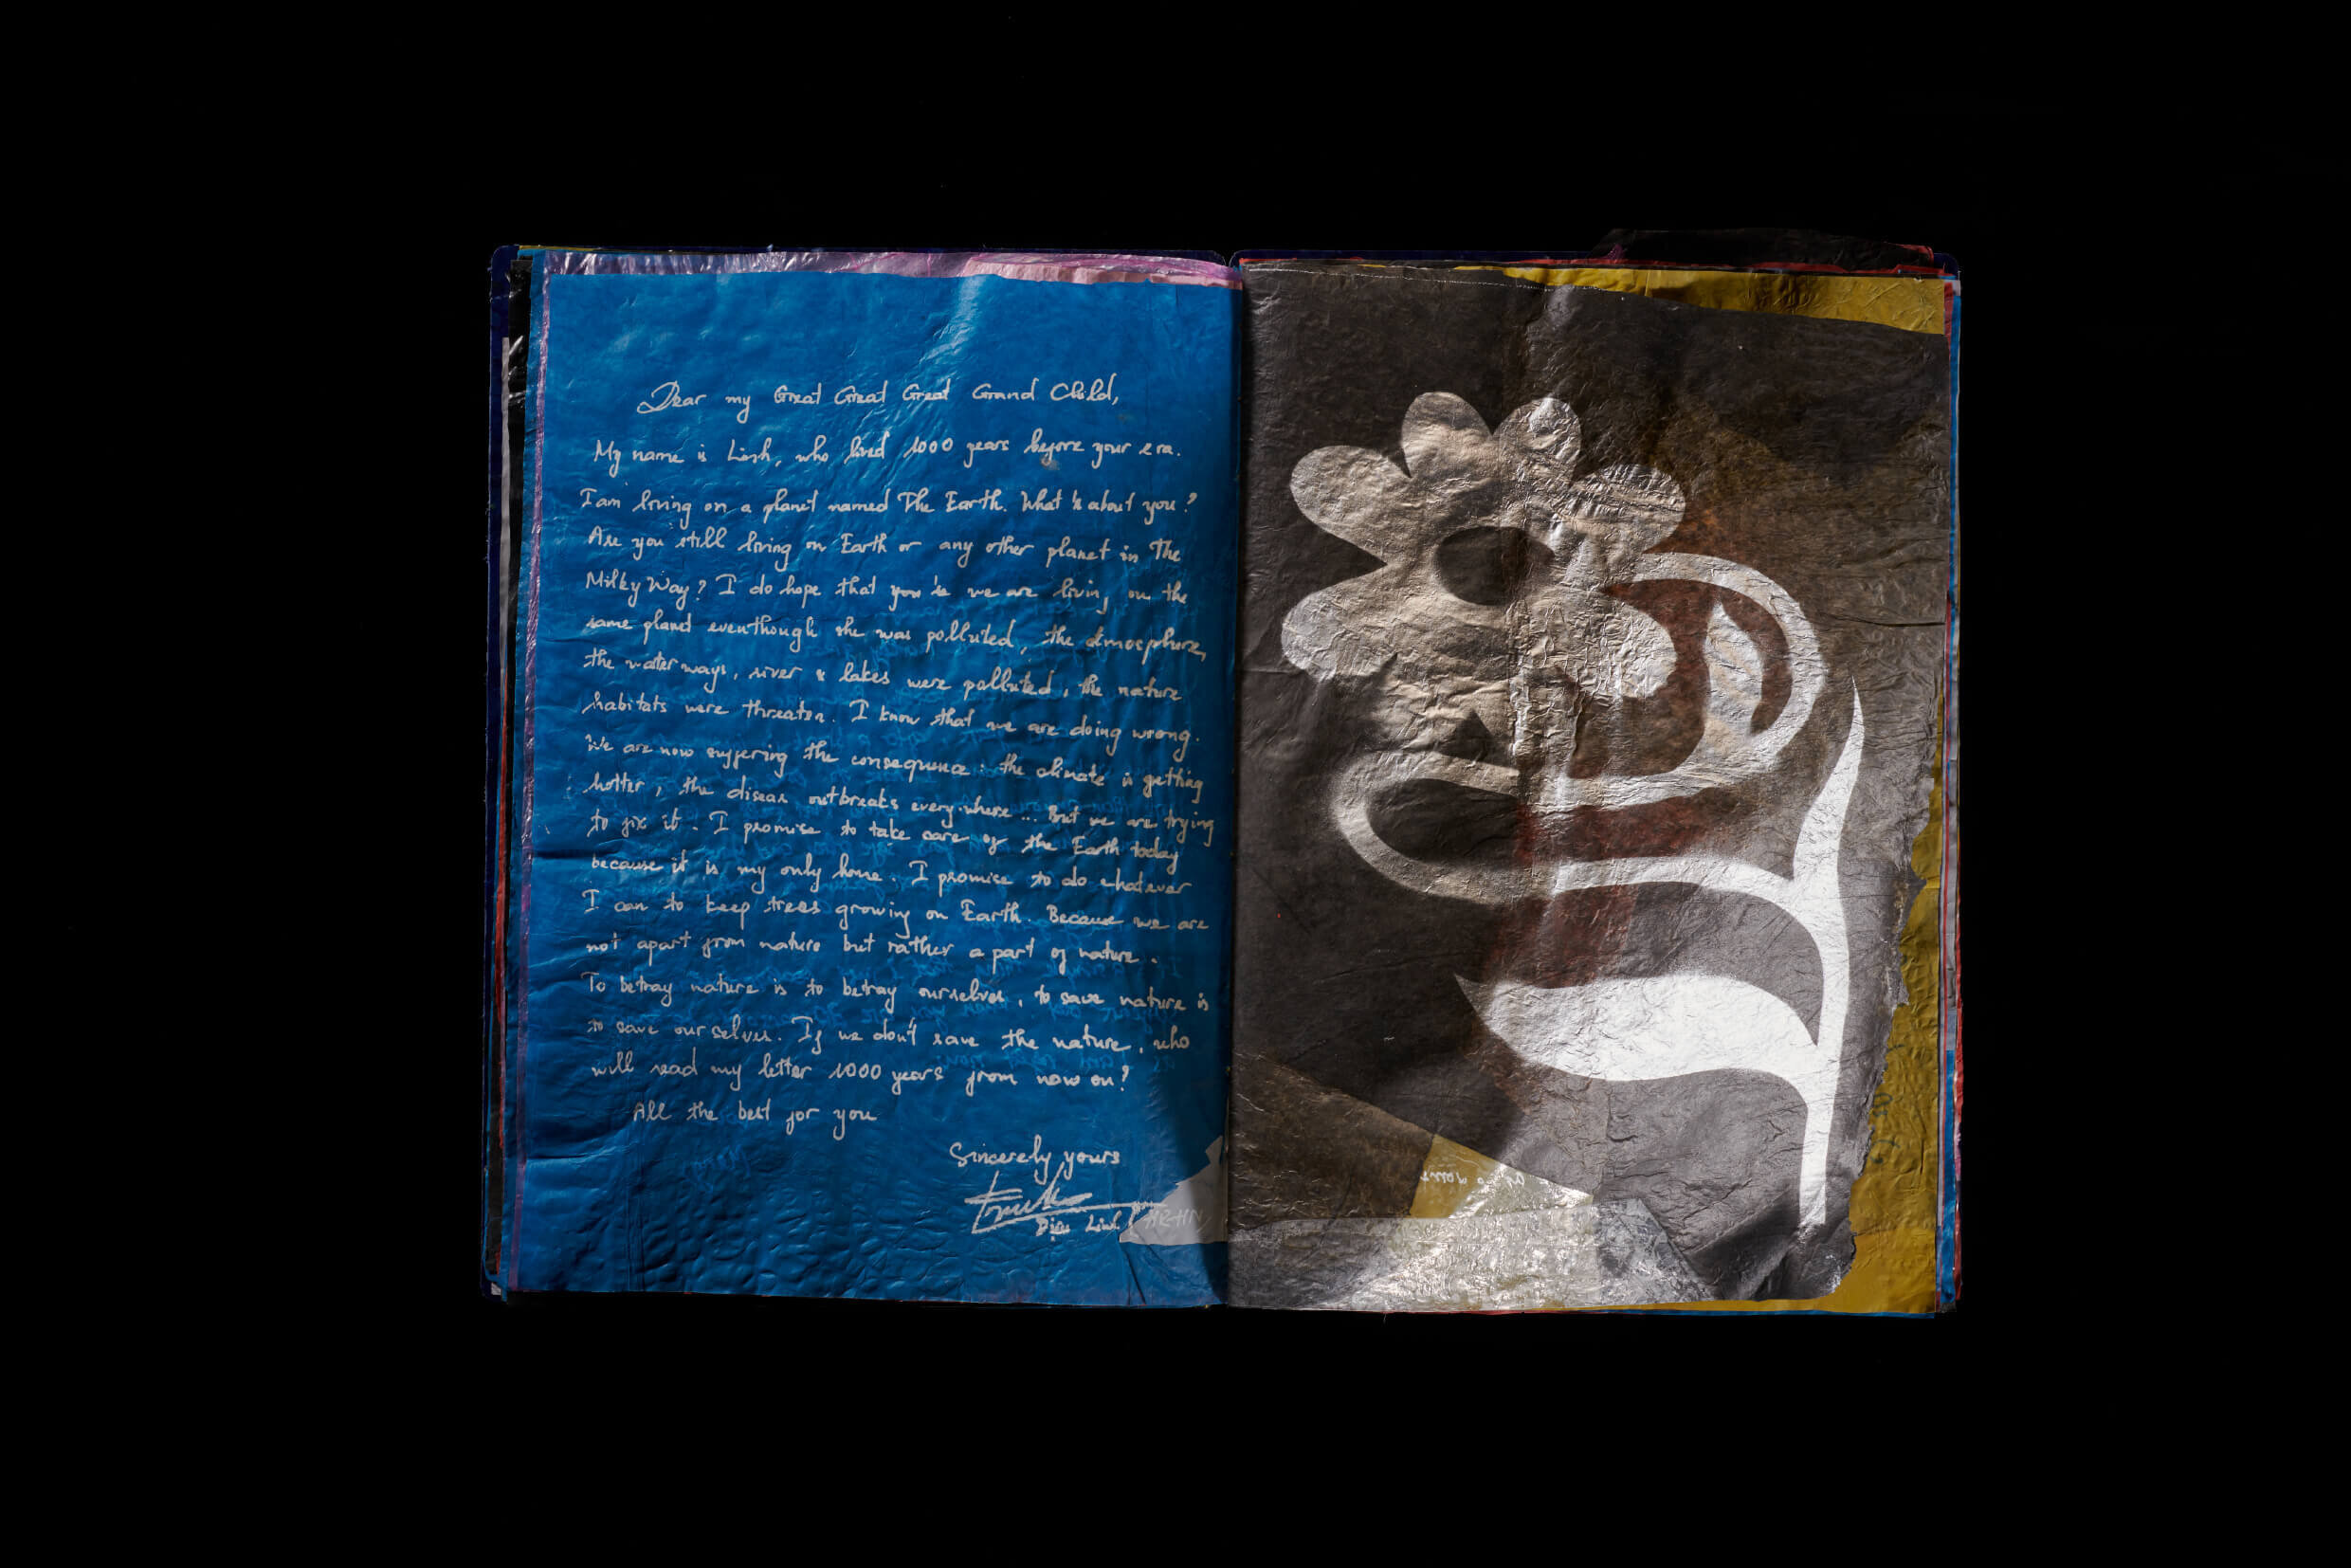 Dear my Great Great Great Grand Child,
My name is Linh, who lived 1000 years before your era.
I am living on a planet named The Earth. What's about you?
Are you still living on Earth or any other planet in the
Milky Way? I do hope that you & we are living on the
same planet eventhough she was polluted, the atmosphere,
the water ways, river & lakes were polluted, the nature
habitats were threaten. I know that we are doing wrong.
We are now suffering the consequence: the climate is getting
hotter, the diseas outbreaks every where ... But we are trying
to fix it. I promise to take care of the Earth today
because it is my only home. I promise to do whatever
I can to keep trees growing on Earth. Because we are
not apart from nature but rather a part of nature.
To betray nature is to betray ourselves, to save nature is
to save our selves. If we don't save the nature, who
will read my letter 1000 years from now on?
All the best for you
Sincerely yours
Diệu Linh
HR-HN